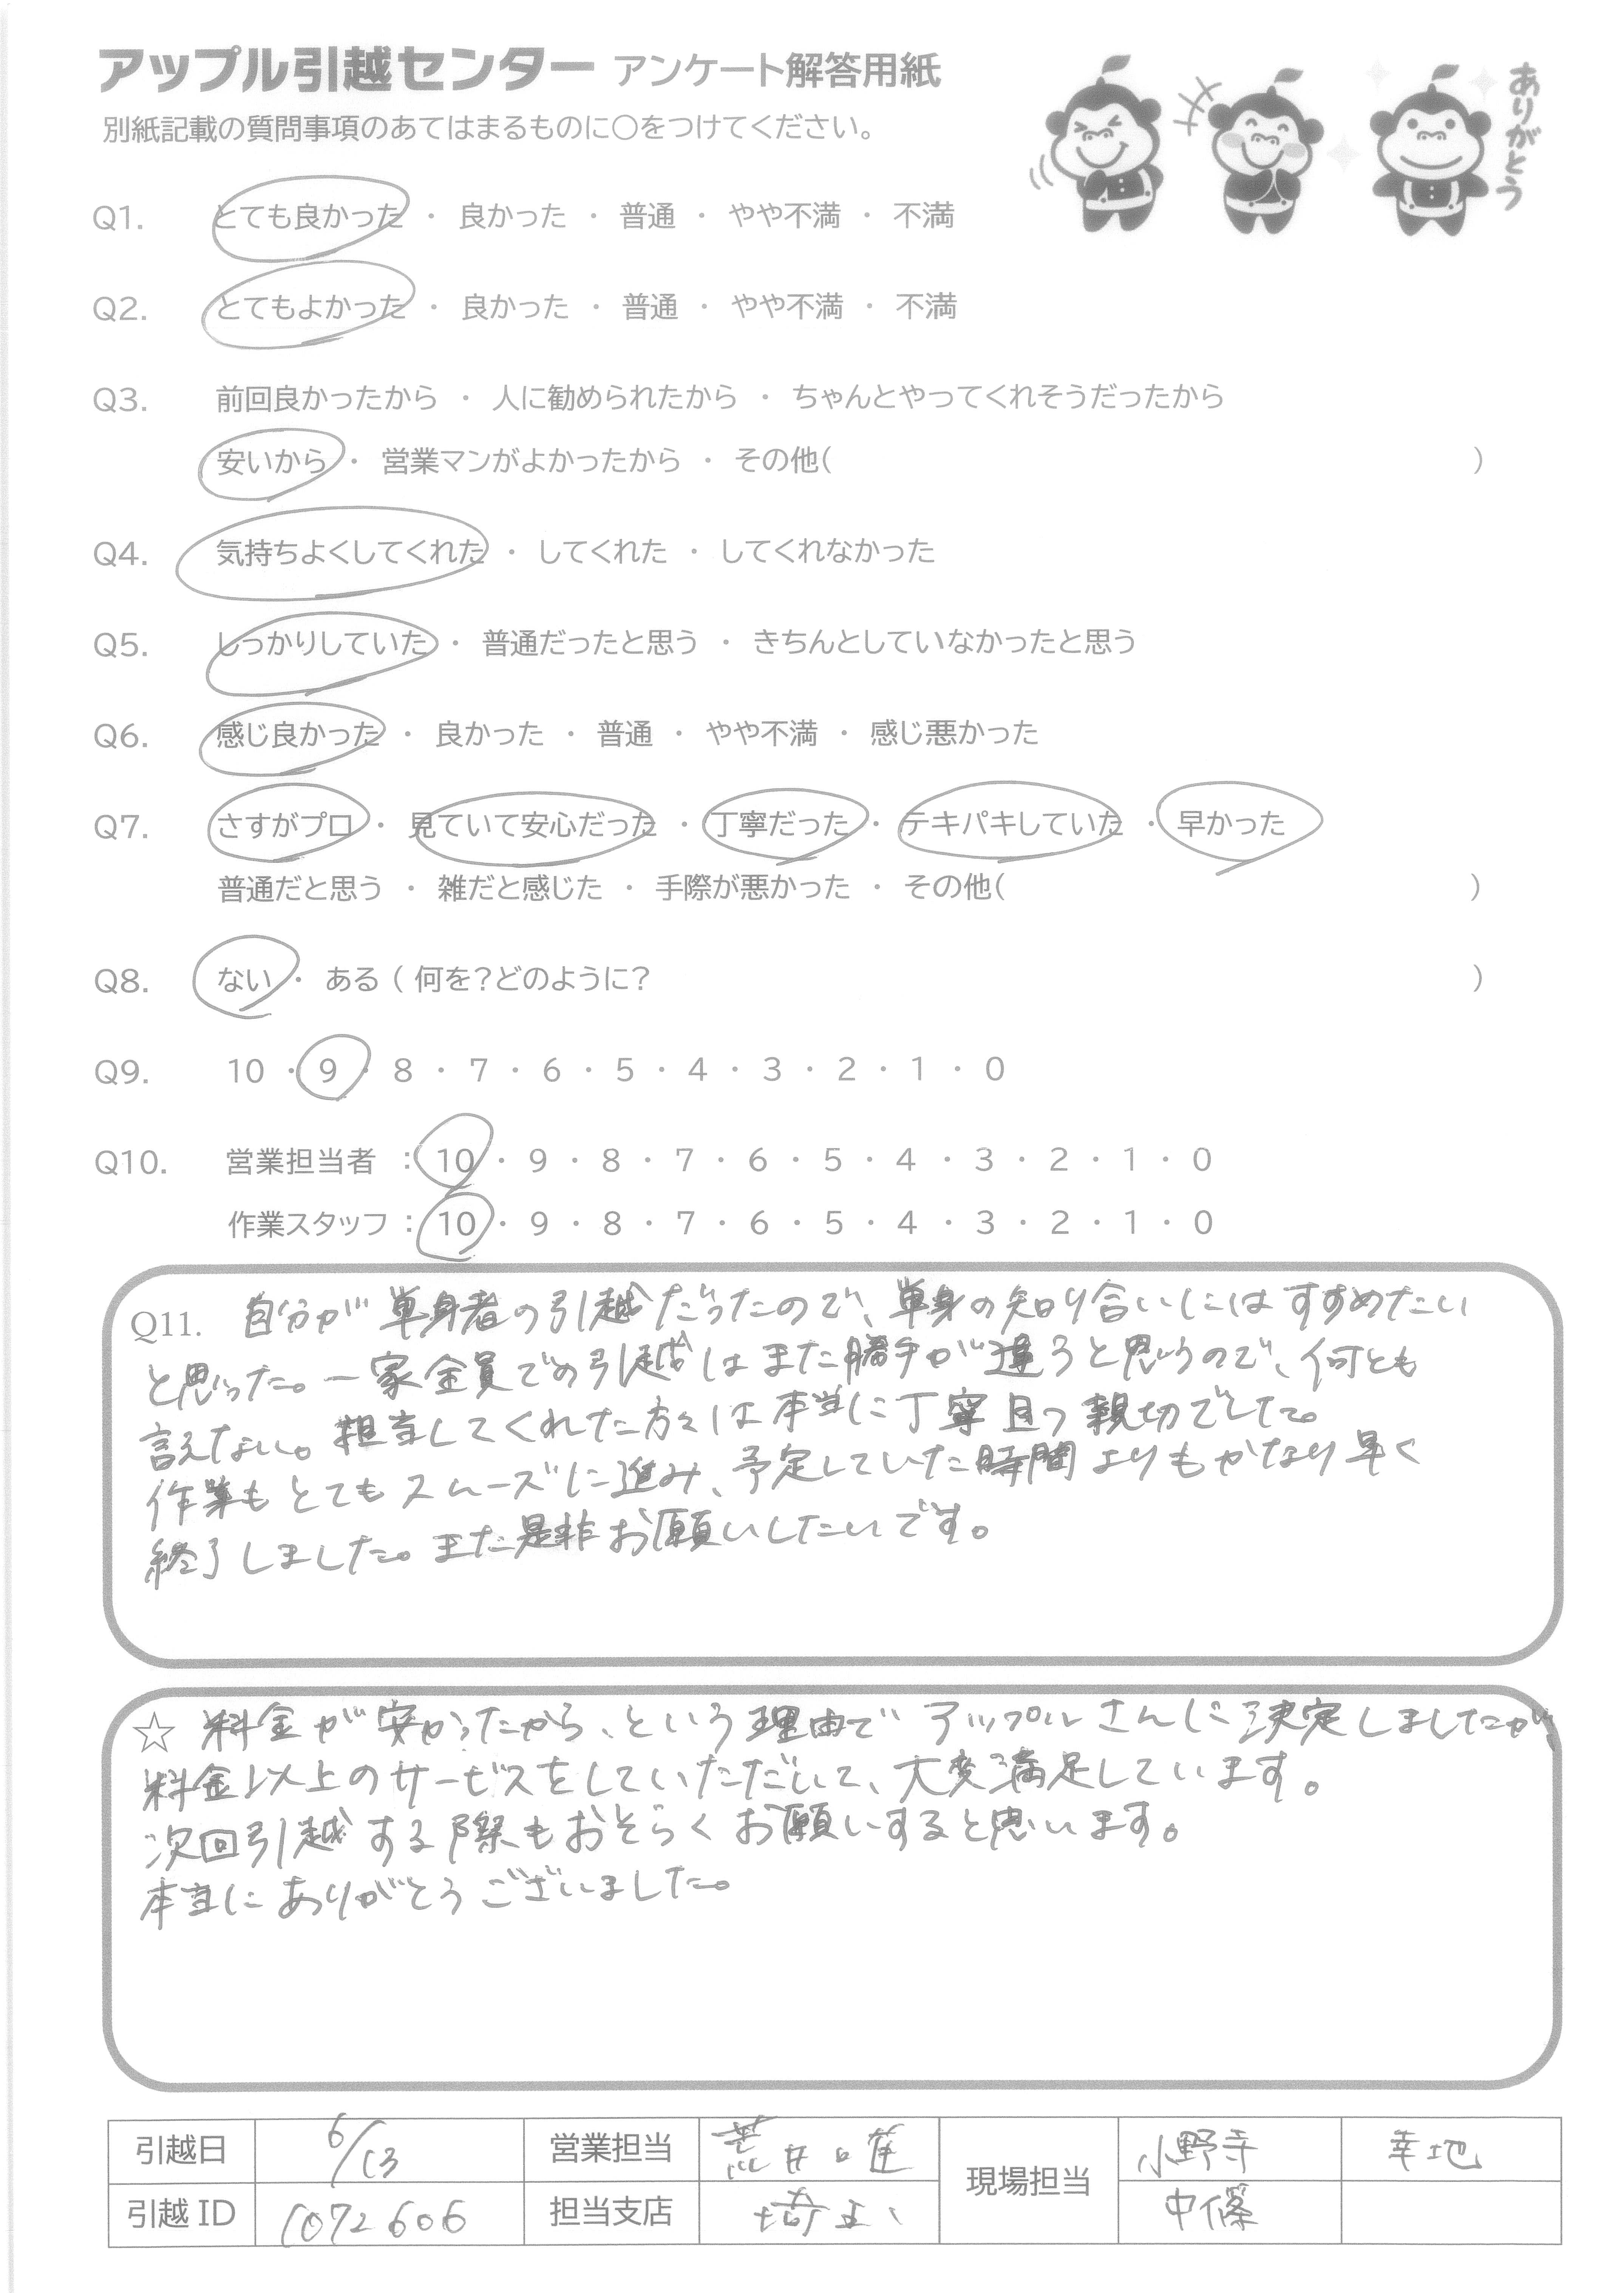 アップル引越センター アンケート解答用紙
ありがとう
別紙記載の質問事項のあてはまるものに○をつけてください。
Q1. とても良かった ・ 良かった ・ 普通 ・ やや不満 ・ 不満
Q2. とてもよかった ・ 良かった ・ 普通 ・ やや不満 ・ 不満
Q3. 前回良かったから ・ 人に勧められたから ・ ちゃんとやってくれそうだったから
安いから ・ 営業マンがよかったから ・ その他( )
Q4. 気持ちよくしてくれた ・ してくれた ・ してくれなかった
Q5. しっかりしていた ・ 普通だったと思う ・ きちんとしていなかったと思う
Q6. 感じ良かった ・ 良かった ・ 普通 ・ やや不満 ・ 感じ悪かった
Q7. さすがプロ ・ 見ていて安心だった ・ 丁寧だった ・ テキパキしていた ・ 早かった
普通だと思う ・ 雑だと感じた ・ 手際が悪かった ・ その他( )
Q8. ない ・ ある ( 何を?どのように? )
Q9. 10 ・ 9 ・ 8 ・ 7 ・ 6 ・ 5 ・ 4 ・ 3 ・ 2 ・ 1 ・ 0
Q10. 営業担当者 : 10 ・ 9 ・ 8 ・ 7 ・ 6 ・ 5 ・ 4 ・ 3 ・ 2 ・ 1 ・ 0
作業スタッフ : 10 ・ 9 ・ 8 ・ 7 ・ 6 ・ 5 ・ 4 ・ 3 ・ 2 ・ 1 ・ 0
Q11. 自分が単身者の引越だったので、単身の知り合いにはすすめたい
と思った。一家全員での引越はまた勝手が違うと思うので、何とも
言えない。担当してくれた方々は本当に丁寧且つ親切でした。
作業もとてもスムーズに進み、予定していた時間よりもかなり早く
終了しました。また是非お願いしたいです。
☆ 料金が安かったから、という理由でアップルさんに決定しましたが、
料金以上のサービスをしていただいて、大変満足しています。
次回引越する際もおそらくお願いすると思います。
本当にありがとうございました。
引越日 6/13 営業担当 荒井 現場担当 小野寺 幸地
引越ID 1072606 担当支店 埼玉 中篠